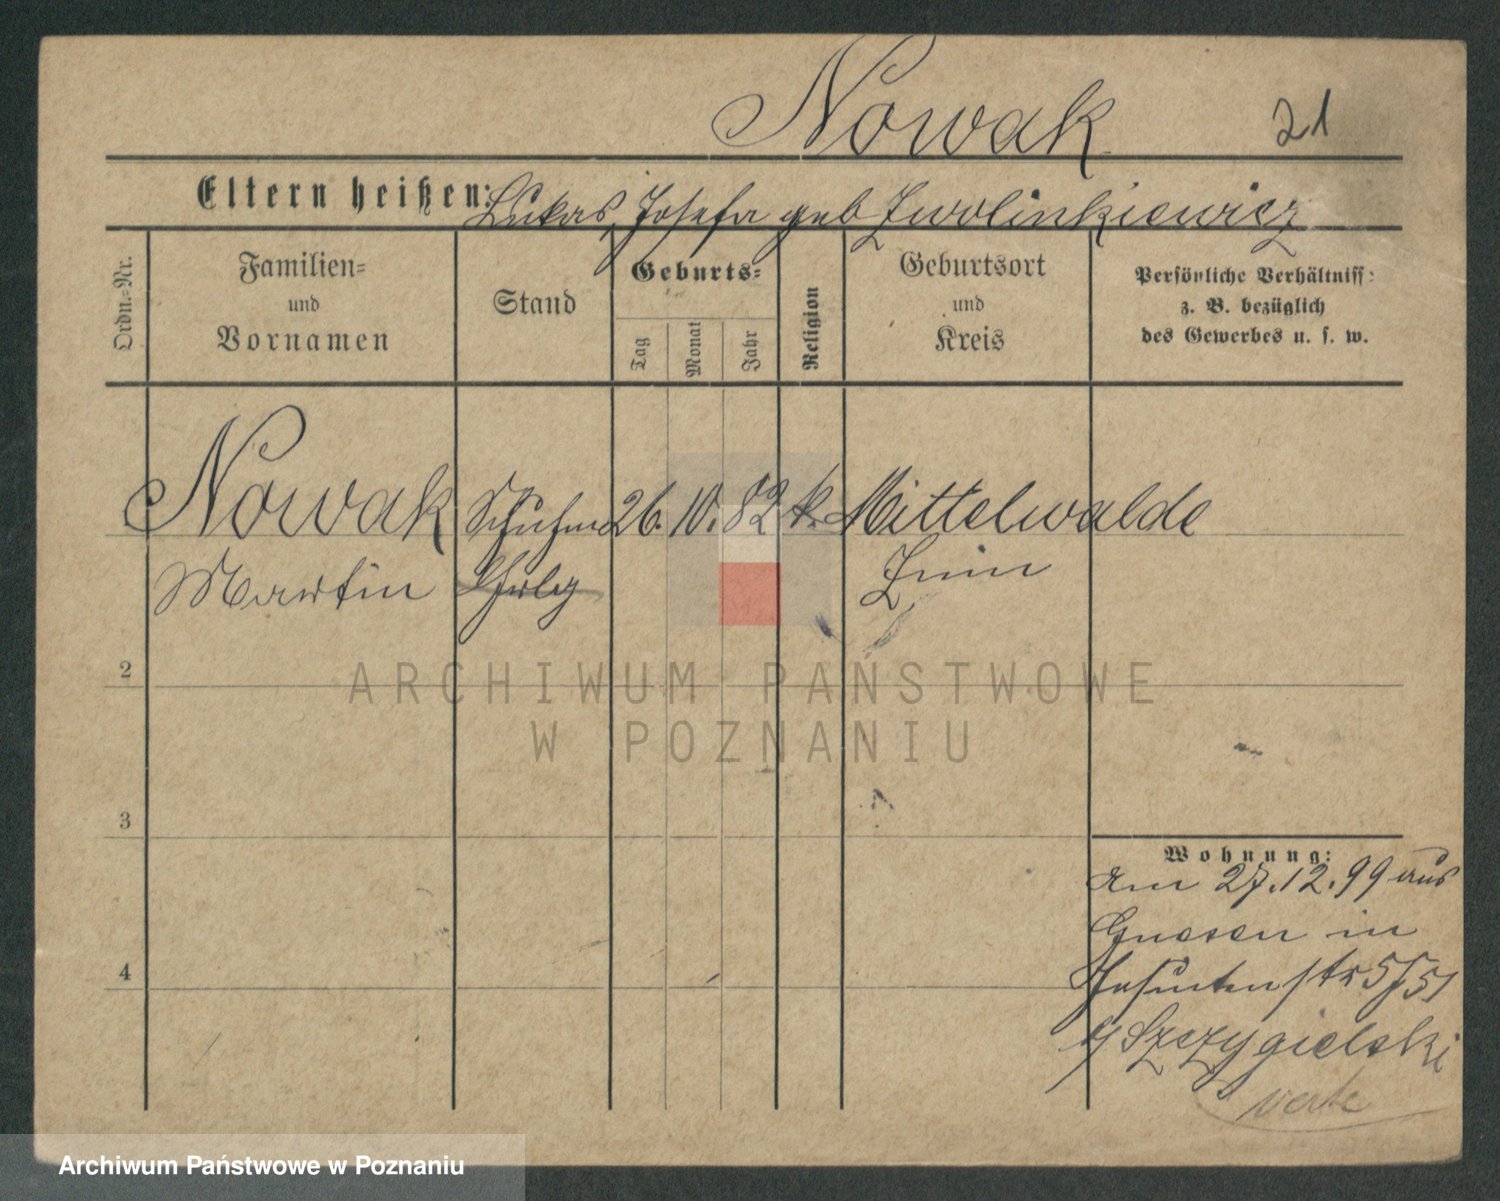 Nowak 21
Eltern heißen: Lukas, Josefa geb Zwolinkiewicz
Ordn.-Nr.
Familien-
und
Vornamen
Stand
Geburts-
Tag
Monat
Jahr
Religion
Geburtsort
und
Kreis
Persönliche Verhältniss:
z. B. bezüglich
des Gewerbes u. s. w.
Nowak Schuhm 26. 10. 82 k. Mittelwalde
Martin Znin
2
ARCHIWUM PAŃSTWOWE
W POZNANIU
3
Wohnung:
am 27.12.99 aus
Gnesen in
4
Jesuitenstr 5/51
Szczygielski
verte
Archiwum Państwowe w Poznaniu